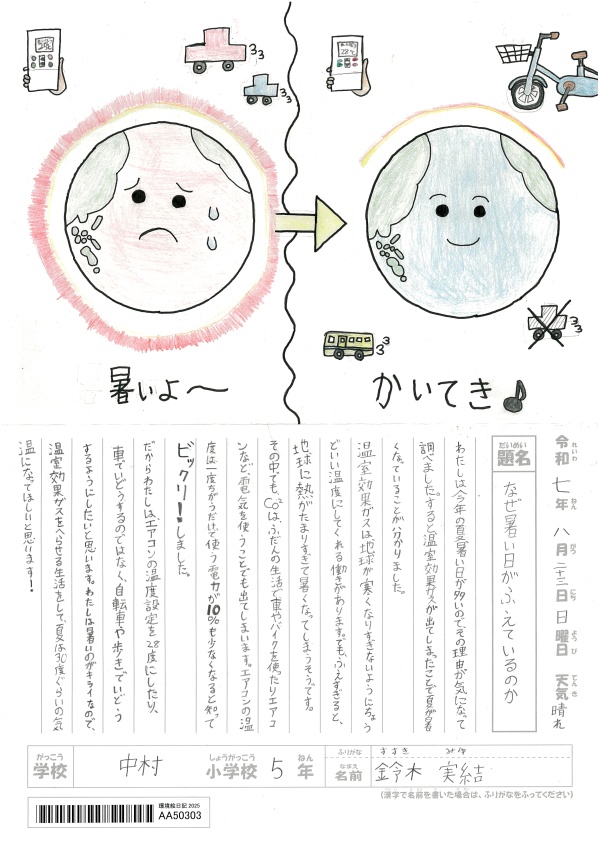 暑いよ～
28℃
かいてき♪
令和 七年 八月 二十三日 日曜日 天気 晴れ
れいわ ねん がつ にち ようび てんき
だいめい
題名 なぜ暑い日がふえているのか
わたしは今年の夏、暑い日が多いので、その理由が気になって
調べました。すると温室効果ガスが出てしまったことで夏が暑
くなっていることが分かりました。
温室効果ガスは地球が寒くなりすぎないようにちょう
どいい温度にしてくれる働きがあります。でも、ふえすぎると、
地球に熱がたまりすぎて暑くなってしまうそうです。
その中でも、Co²は、ふだんの生活で車やバイクを使ったりエアコ
ンなど、電気を使うことでも出てしまいます。エアコンの温
度は一度ちがうだけで使う電力が10%も少なくなると知って
ビックリ!しました。
だからわたしは、エアコンの温度設定を28度にしたり、
車でいどうするのではなく、自転車や歩きでいどう
するようにしたいと思います。わたしは暑いのがキライなので、
温室効果ガスをへらせる生活をして、夏は30度ぐらいの気
温になってほしいと思います!
がっこう しょうがっこう ねん ふりがな すずき みゆ
学校 中村 小学校 5年 なまえ 名前 鈴木 実結
(漢字で名前を書いた場合は、ふりがなをふってください)
環境絵日記 2025
AA50303